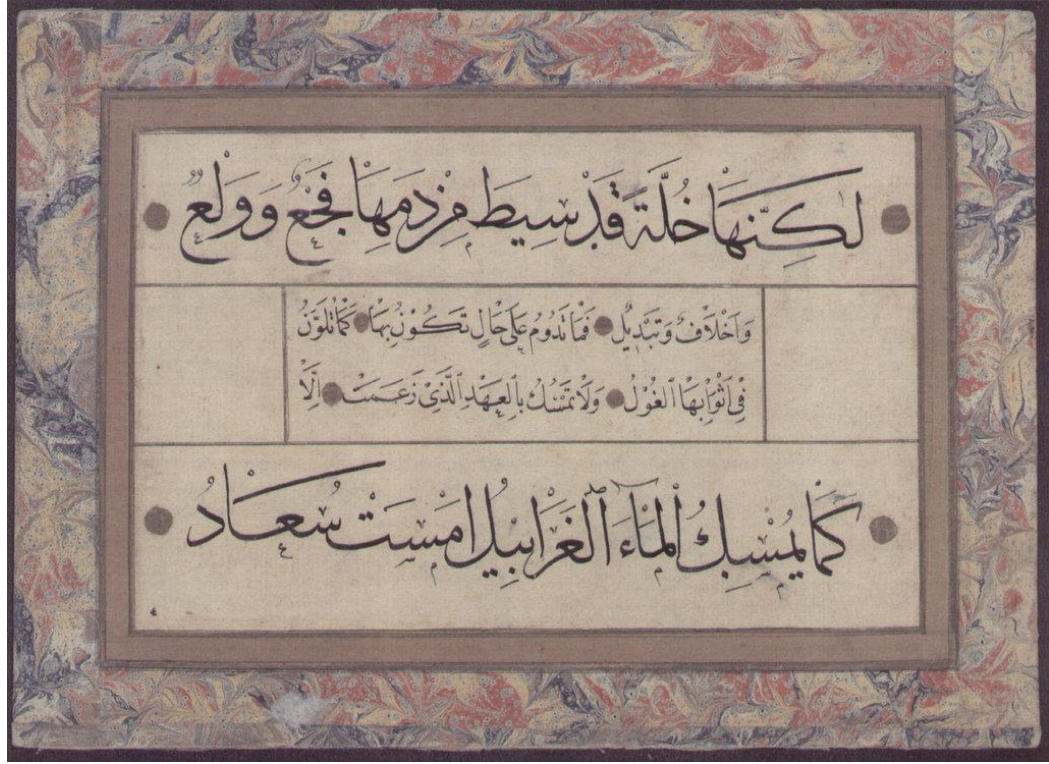 لٰكِنَّهَا خُلَّةٌ قَدْ سِيطَ مِنْ دَمِهَا فَجْعٌ وَوَلْعٌ
وَاَخْلَافٌ وَتَبْدِيلٌ فَمَا تَدُومُ عَلٰى حَالٍ تَكُونُ بِهَا كَمَا تَلَوَّنُ
فِى اَثْوَابِهَا الْغُولُ وَلَا تَمَسُّكُ بِالْعَهْدِ الَّذِى زَعَمَتْ اِلَّا
كَمَا يُمْسِكُ الْمَاءَ الْغَرَابِيلُ اَمْسَتْ سُعَادُ
٤